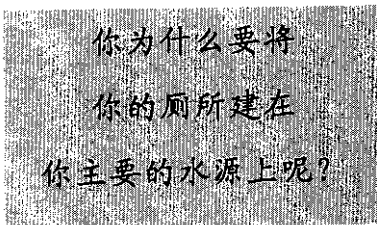 你为什么要将
你的厕所建在
你主要的水源上呢？